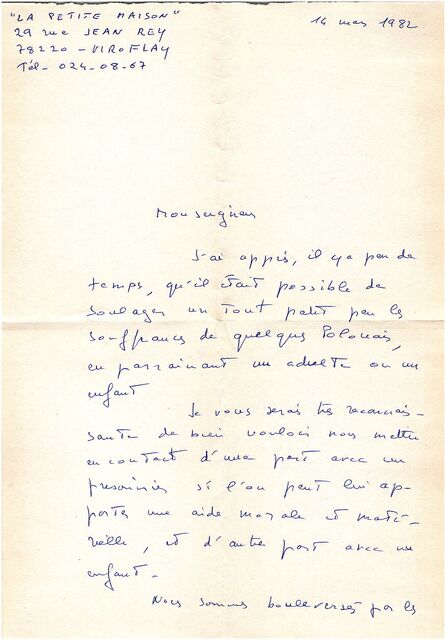 "LA PETITE MAISON"
29 rue JEAN REY
78220 - VIROFLAY
Tél. 024-08-67
14 mars 1982
Monseigneur
J'ai appris, il y a peu de
temps, qu'il était possible de
soulager un tout petit peu les
souffrances de quelques Polonais,
en parrainant un adulte ou un
enfant
Je vous serais très reconnais-
sante de bien vouloir nous mettre
en contact d'une part avec un
prisonnier si l'on peut lui ap-
porter une aide morale et maté-
rielle, et d'autre part avec un
enfant.
Nous sommes bouleversés par les